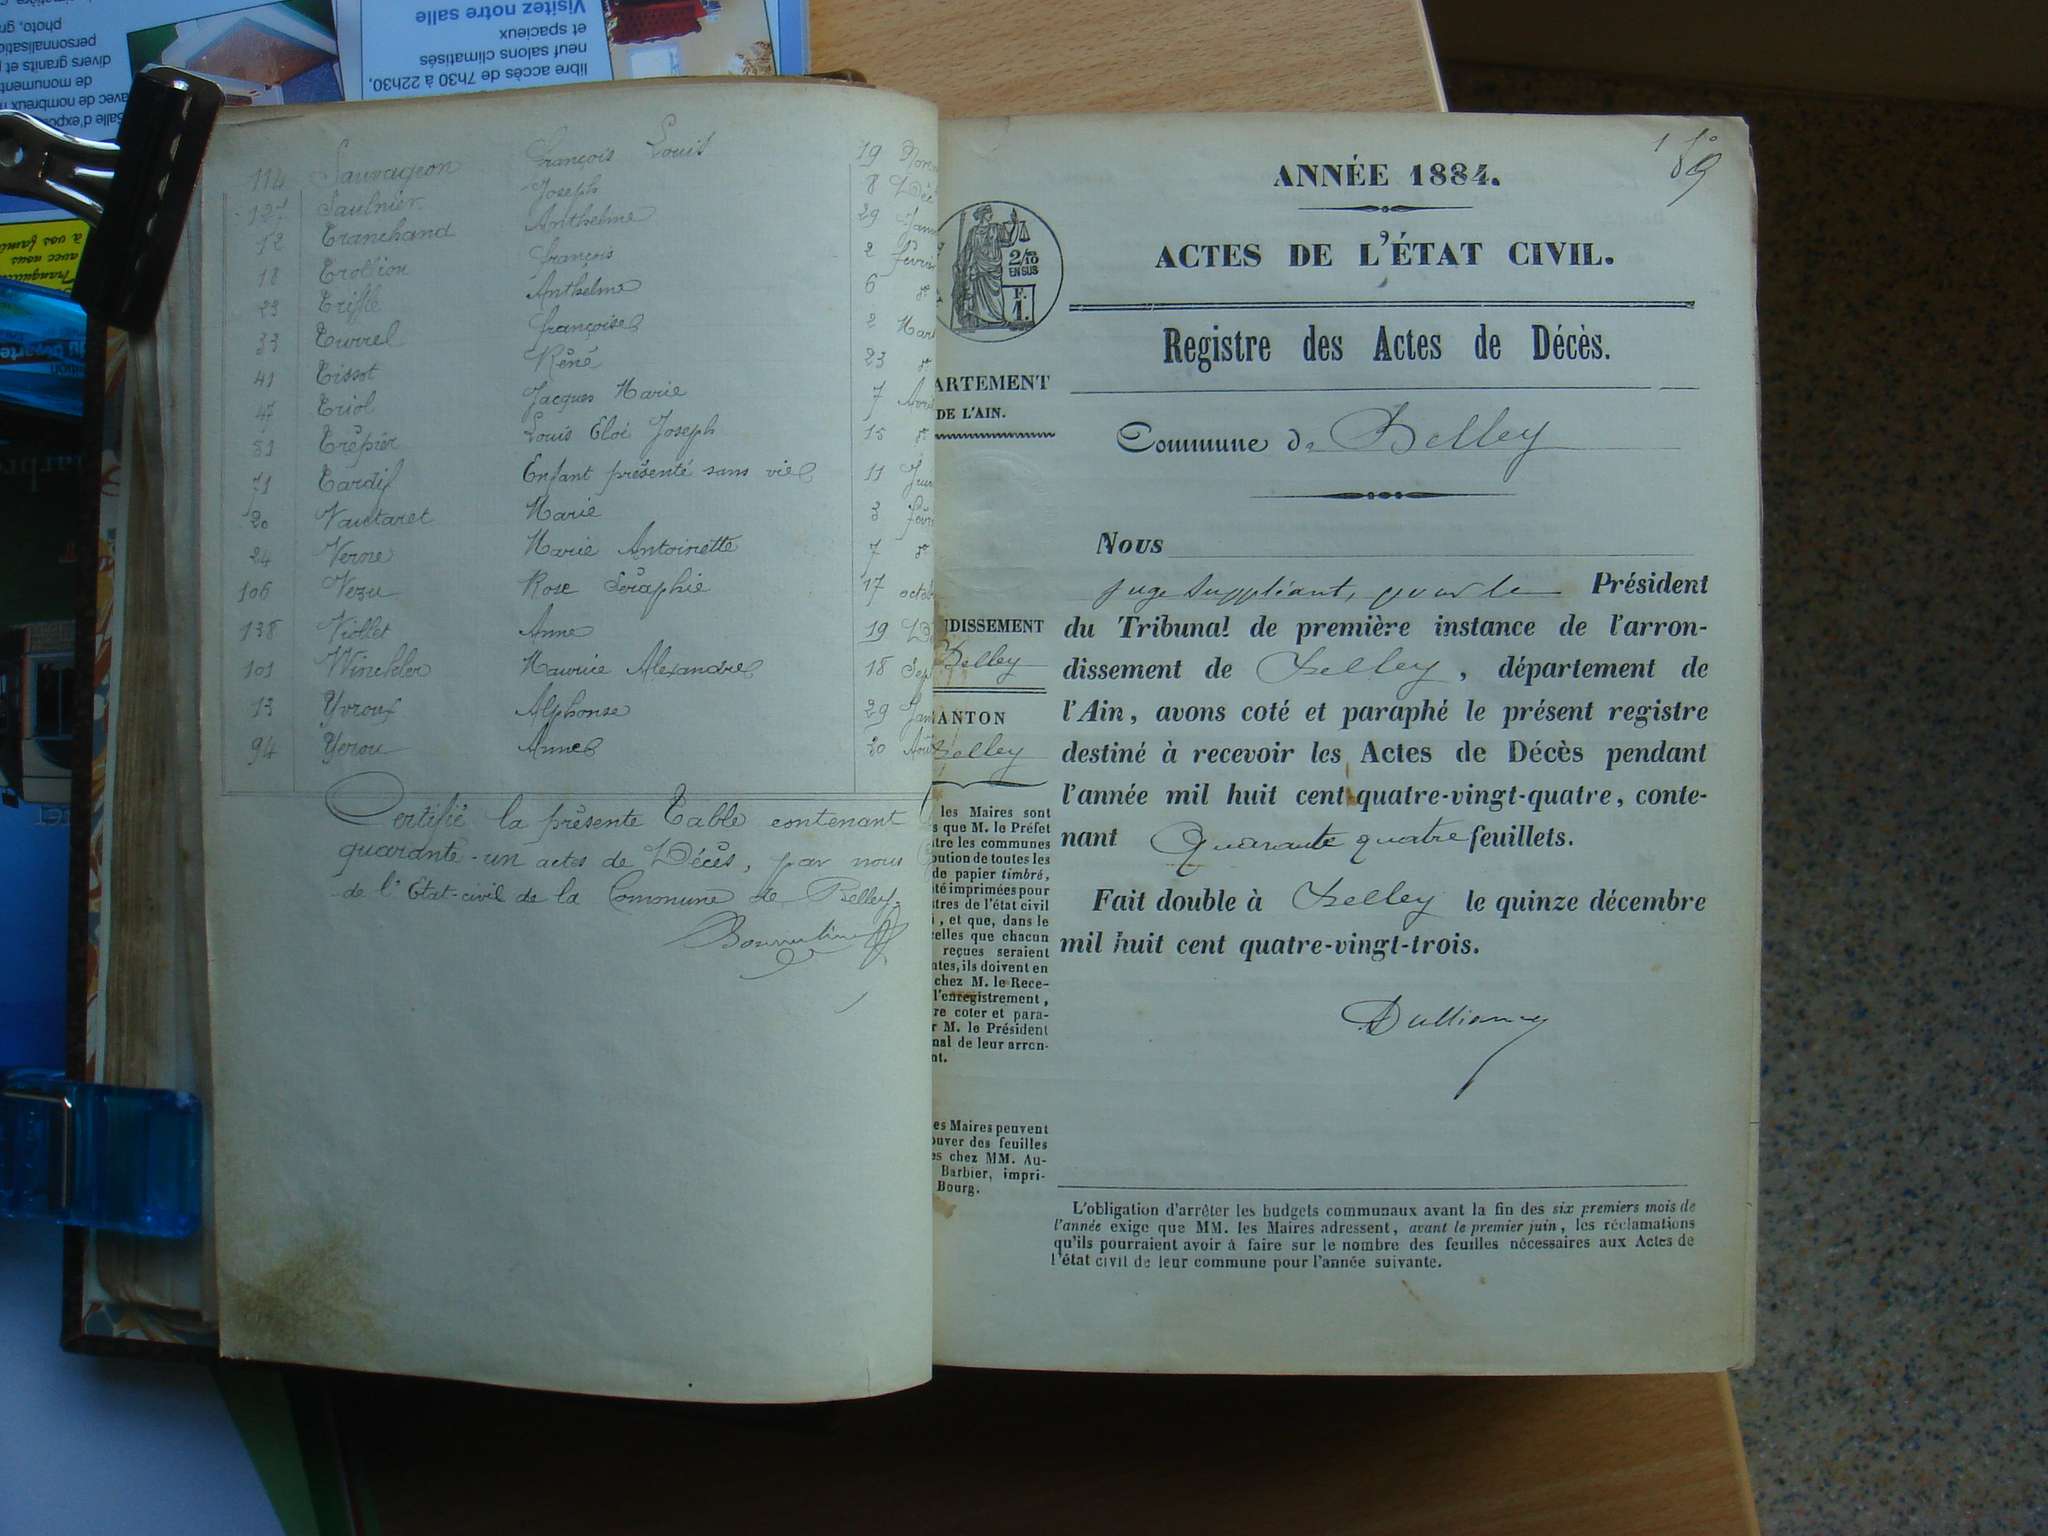 libre accès de 7h30 à 22h30,
neuf salons climatisés
et spacieux
Visitez notre salle
114 Sauvageon François Louis 19
127 Saulnier Joseph 8 Déc
12 Tranchand Anthelme 29 Jan
18 Trollion François 2 Févri
23 Anthelme 6 do
33 Turrel Françoise 2 Mar
41 Tissot Réné 23 do
47 Triol Jacques Marie 7 Avri
51 Trépier Louis Eloi Joseph 15 do
71 Tardif Enfant présenté sans vie 11 Jui
20 Marie 3 Févr
24 Verne Marie Antoinette 7 do
106 Vezu Rose Séraphie 17 octob
138 Viollet Anne 19 Dé
101 Winckler Maurice Alexandre 18 Sep
13 Yvroux Alphonse 29 Jan
94 Yvrou Anne 20 Aoû
Certifié la présente Table contenant
quarante-un actes de Décès, par nous
de l'Etat-civil de la Commune de Belley.
1 fo
ANNÉE 1884.
ACTES DE L'ÉTAT CIVIL.
2/10
EN SUS
F.
1.
Registre des Actes de Décès.
ARTEMENT
DE L'AIN.
Commune de Belley
Nous
juge suppléant, pour le Président
du Tribunal de première instance de l'arron-
dissement de Belley, département de
l'Ain, avons coté et paraphé le présent registre
destiné à recevoir les Actes de Décès pendant
l'année mil huit cent quatre-vingt-quatre, conte-
nant Quarante quatre feuillets.
Fait double à Belley le quinze décembre
mil huit cent quatre-vingt-trois.
NDISSEMENT
Belley
ANTON
Belley
les Maires sont
s que M. le Préfet
tre les communes
bution de toutes les
de papier timbré,
té imprimées pour
stres de l'état civil
, et que, dans le
celles que chacun
reçues seraient
ntes, ils doivent en
chez M. le Rece-
l'enregistrement,
re coter et para-
r M. le Président
nal de leur arron-
nt.
es Maires peuvent
ouver des feuilles
es chez MM. Au-
Barbier, impri-
Bourg.
L'obligation d'arrêter les budgets communaux avant la fin des six premiers mois de
l'année exige que MM. les Maires adressent, avant le premier juin, les réclamations
qu'ils pourraient avoir à faire sur le nombre des feuilles nécessaires aux Actes de
l'état civil de leur commune pour l'année suivante.